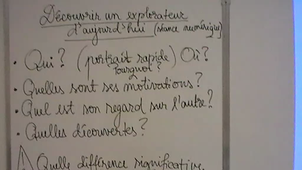 Découvrir un explorateur
d'aujourd'hui (séance numérique)
• Qui ? (portrait rapide) Où ?
Pourquoi ?
• Quelles sont ses motivations ?
• Quel est son regard sur l'autre ?
• Quelles découvertes ?
Quelle différence significative